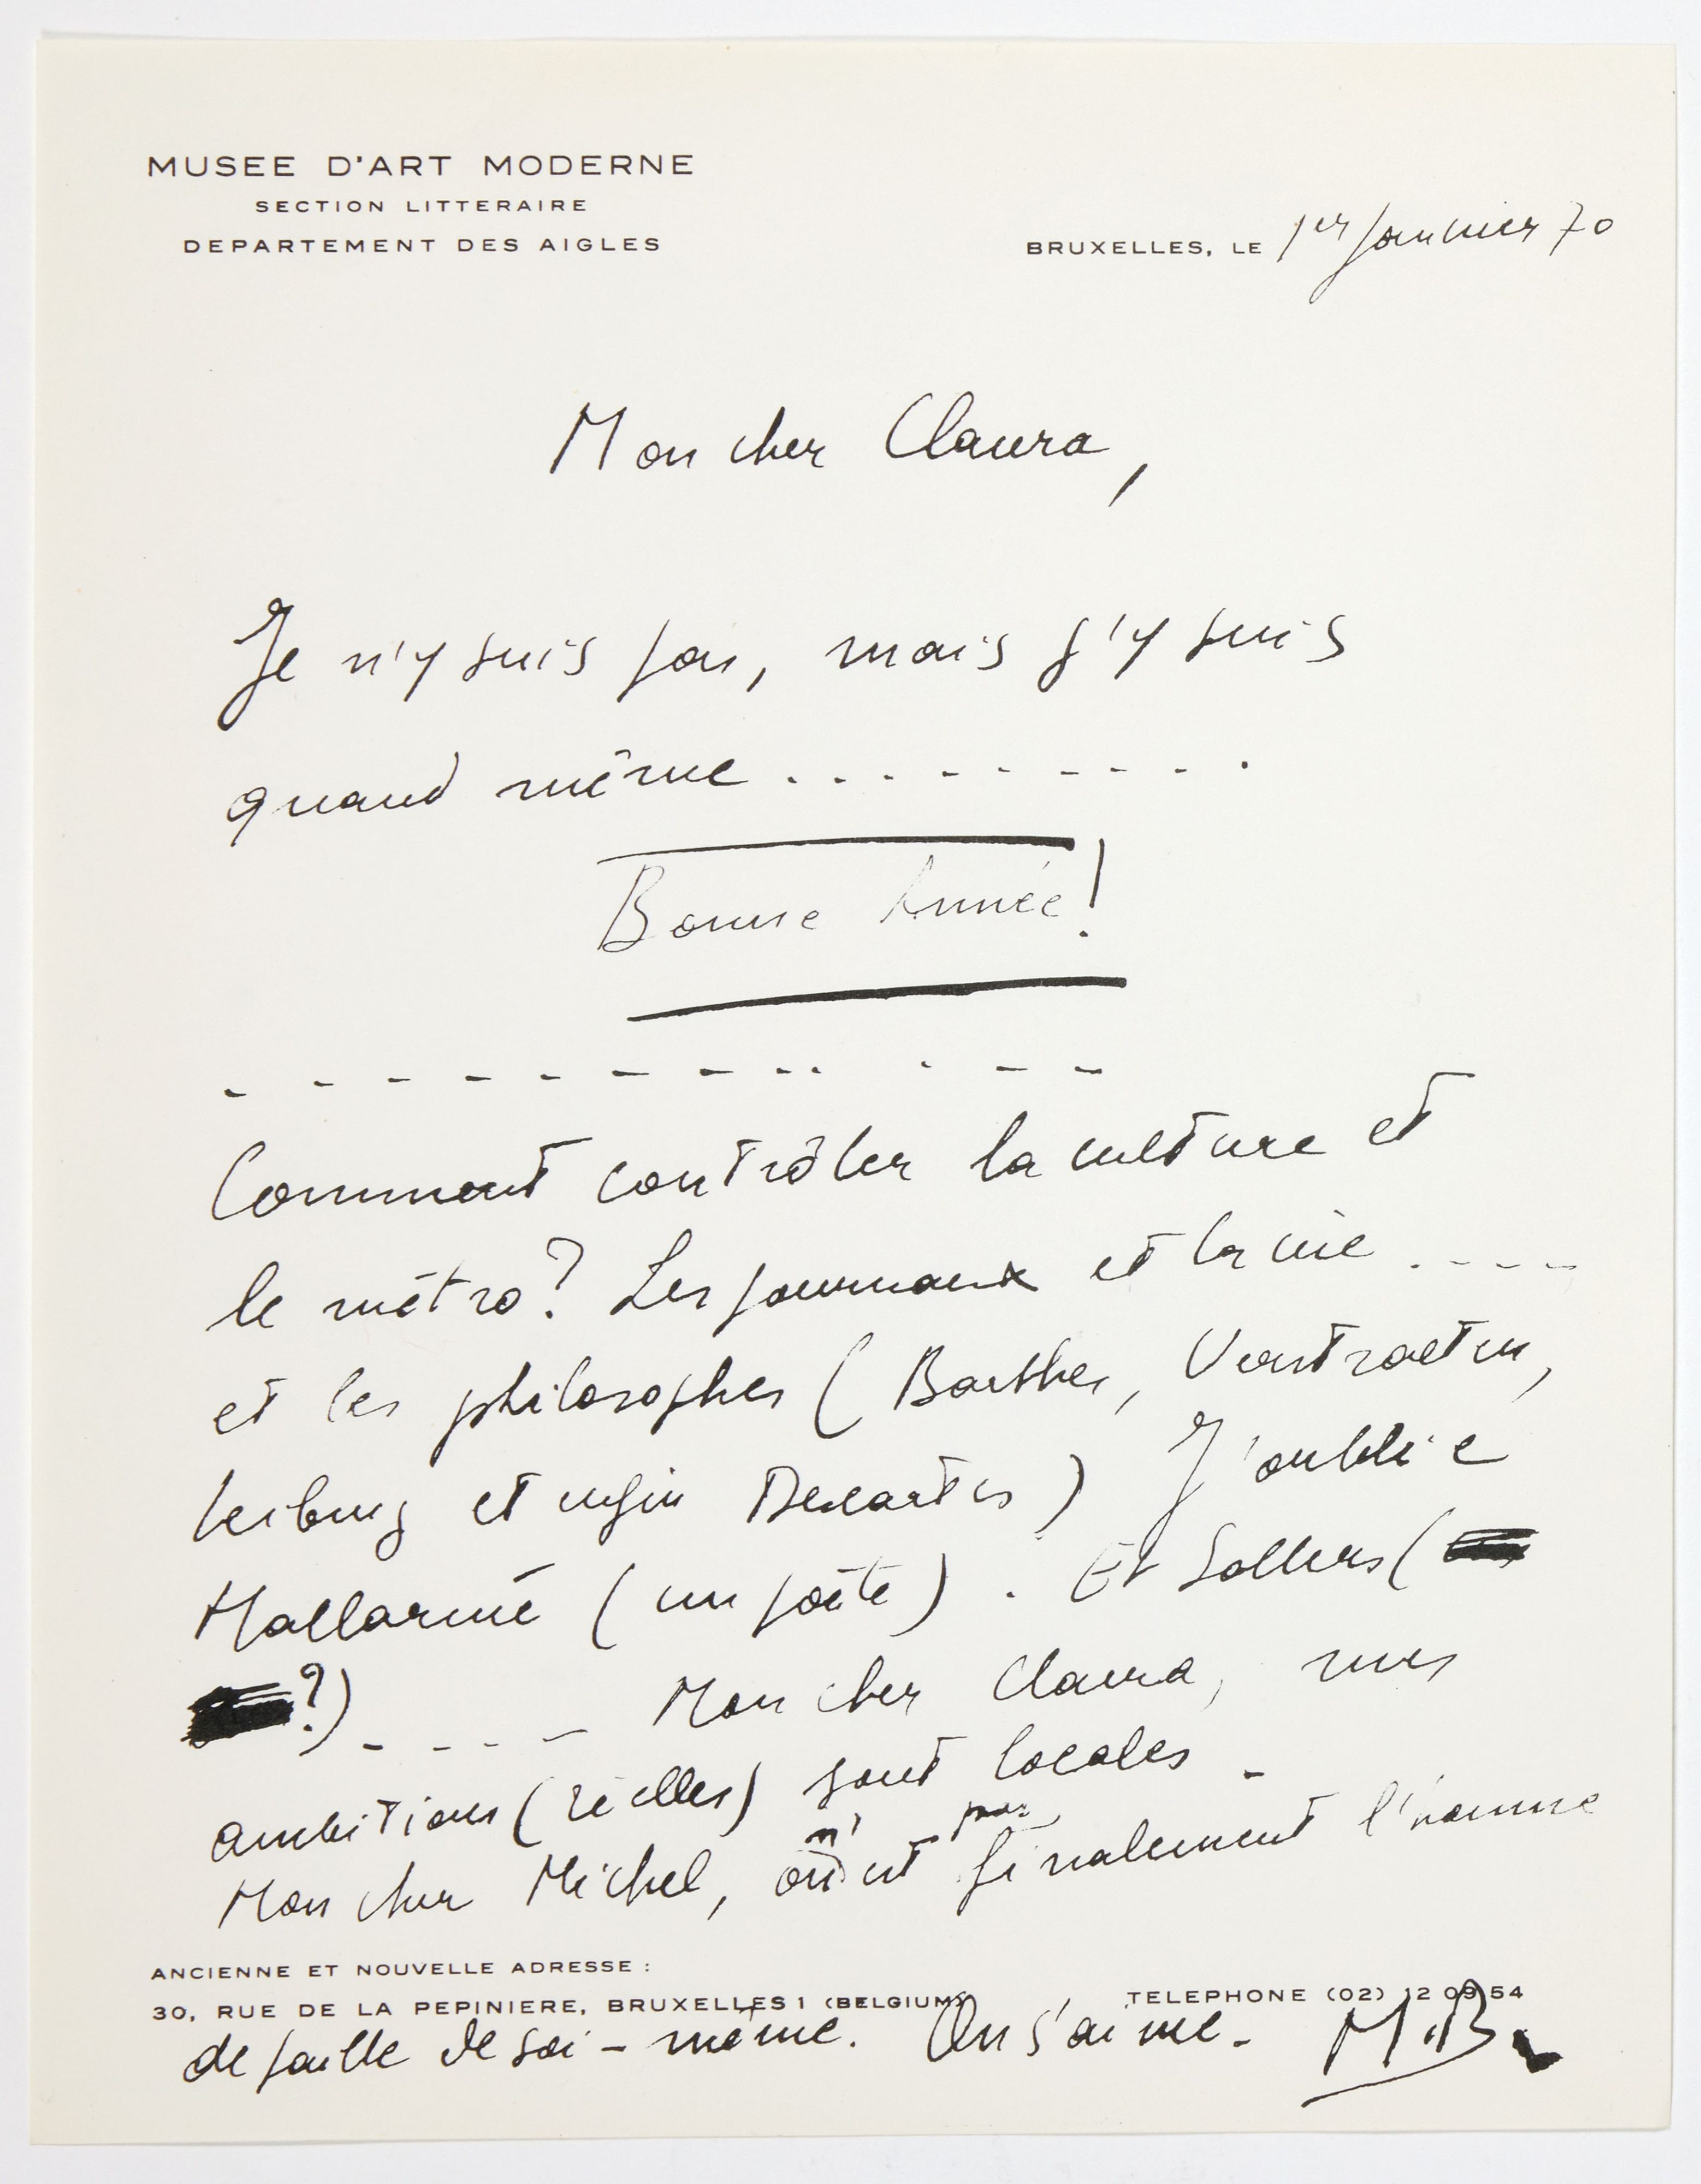 MUSEE D'ART MODERNE
SECTION LITTERAIRE
DEPARTEMENT DES AIGLES
BRUXELLES, LE 1er Janvier 70
Mon cher Claura,
Je n'y suis pas, mais j'y suis
quand même ..........
Bonne Année!
Comment contrôler la culture et
le métro? Les journaux et la vie ....
et les philosophes (Barthes, Verstraeten,
Leibniz et enfin Descartes) J'oublie
Mallarmé (un poète). Et Sollers (
?) .... Mon cher Claura, mes
ambitions (réelles) sont locales -
Mon cher Michel, on n'est pas finalement l'homme
ANCIENNE ET NOUVELLE ADRESSE :
30, RUE DE LA PEPINIERE, BRUXELLES 1 (BELGIUM)
TELEPHONE (02) 12 09 54
de paille de soi-même. On s'aime. M.B.